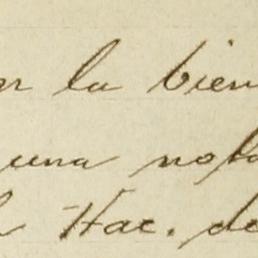 la bien
una nota
Hac. de